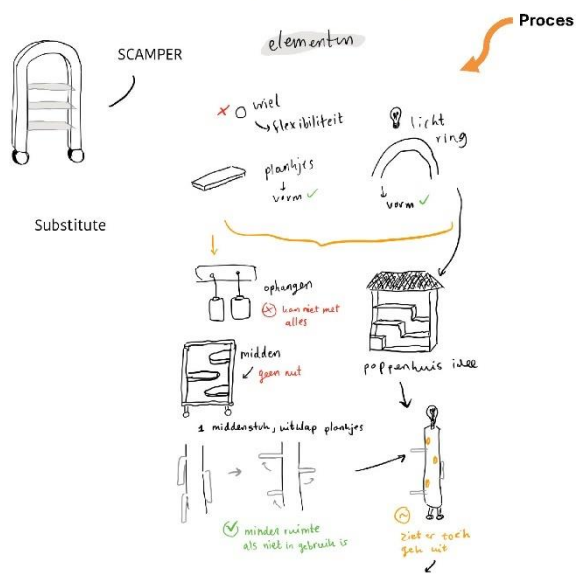 Proces
SCAMPER
elementen
x wiel
↳ flexibiliteit
licht
ring
plankjes
↓
vorm ✓
↓
vorm ✓
Substitute
ophangen
kan niet met
alles
midden
geen nut
poppenhuis idee
1 middenstuk, uitklap plankjes
minder ruimte
als niet in gebruik is
~
ziet er toch
gek uit